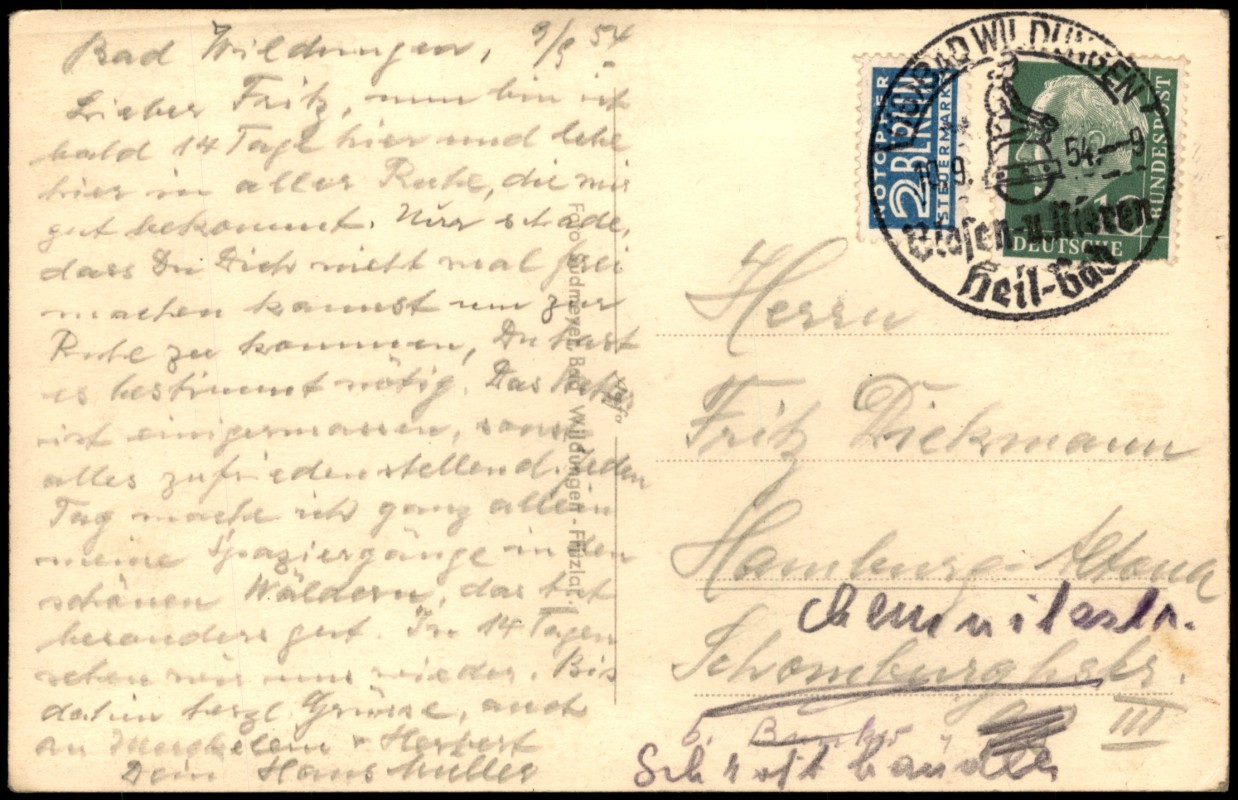 Bad Wildungen, 9/9 54
Lieber Fritz, nun bin ich
bald 14 Tage hier und lebe
hier in aller Ruhe, die mir
gut bekommt. Nur schade,
dass Du Dich nicht mal frei
machen kannst um zur
Ruhe zu kommen, Du hast
es bestimmt nötig. Das
ist einigermassen, sonst
alles zufriedenstellend. Jeden
Tag mache ich ganz allein
meine Spaziergänge in den
schönen Wäldern, das tut
besonders gut. In 14 Tagen
sehen wir uns wieder. Bis
dahin herzl. Grüsse, auch
an Herbert
Dein Hans Müller
Foto Südmeyer, Bad Wildungen - Fritzlar
BAD WILDUNGEN 1
10.9.54.-9
Blasen-u.Nieren
Heil-Bad
NOTOPFER
2 BERLIN
STEUERMARKE
DEUTSCHE
BUNDESPOST
10
Herrn
Fritz Diekmann
Hamburg-Altona
Chemnitzstr.
III
Schrotthändler